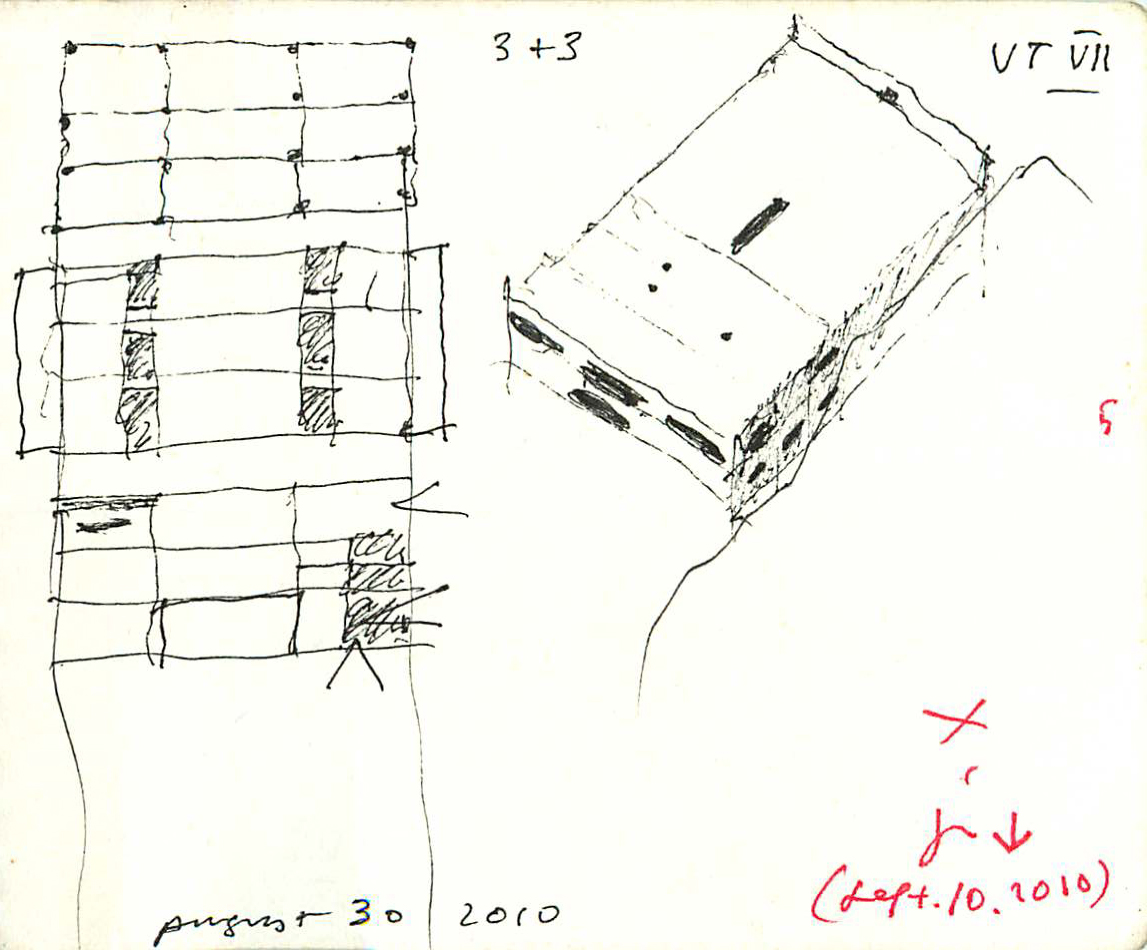 3+3
VT VII
5
august 30 2010
(Sept.10.2010)